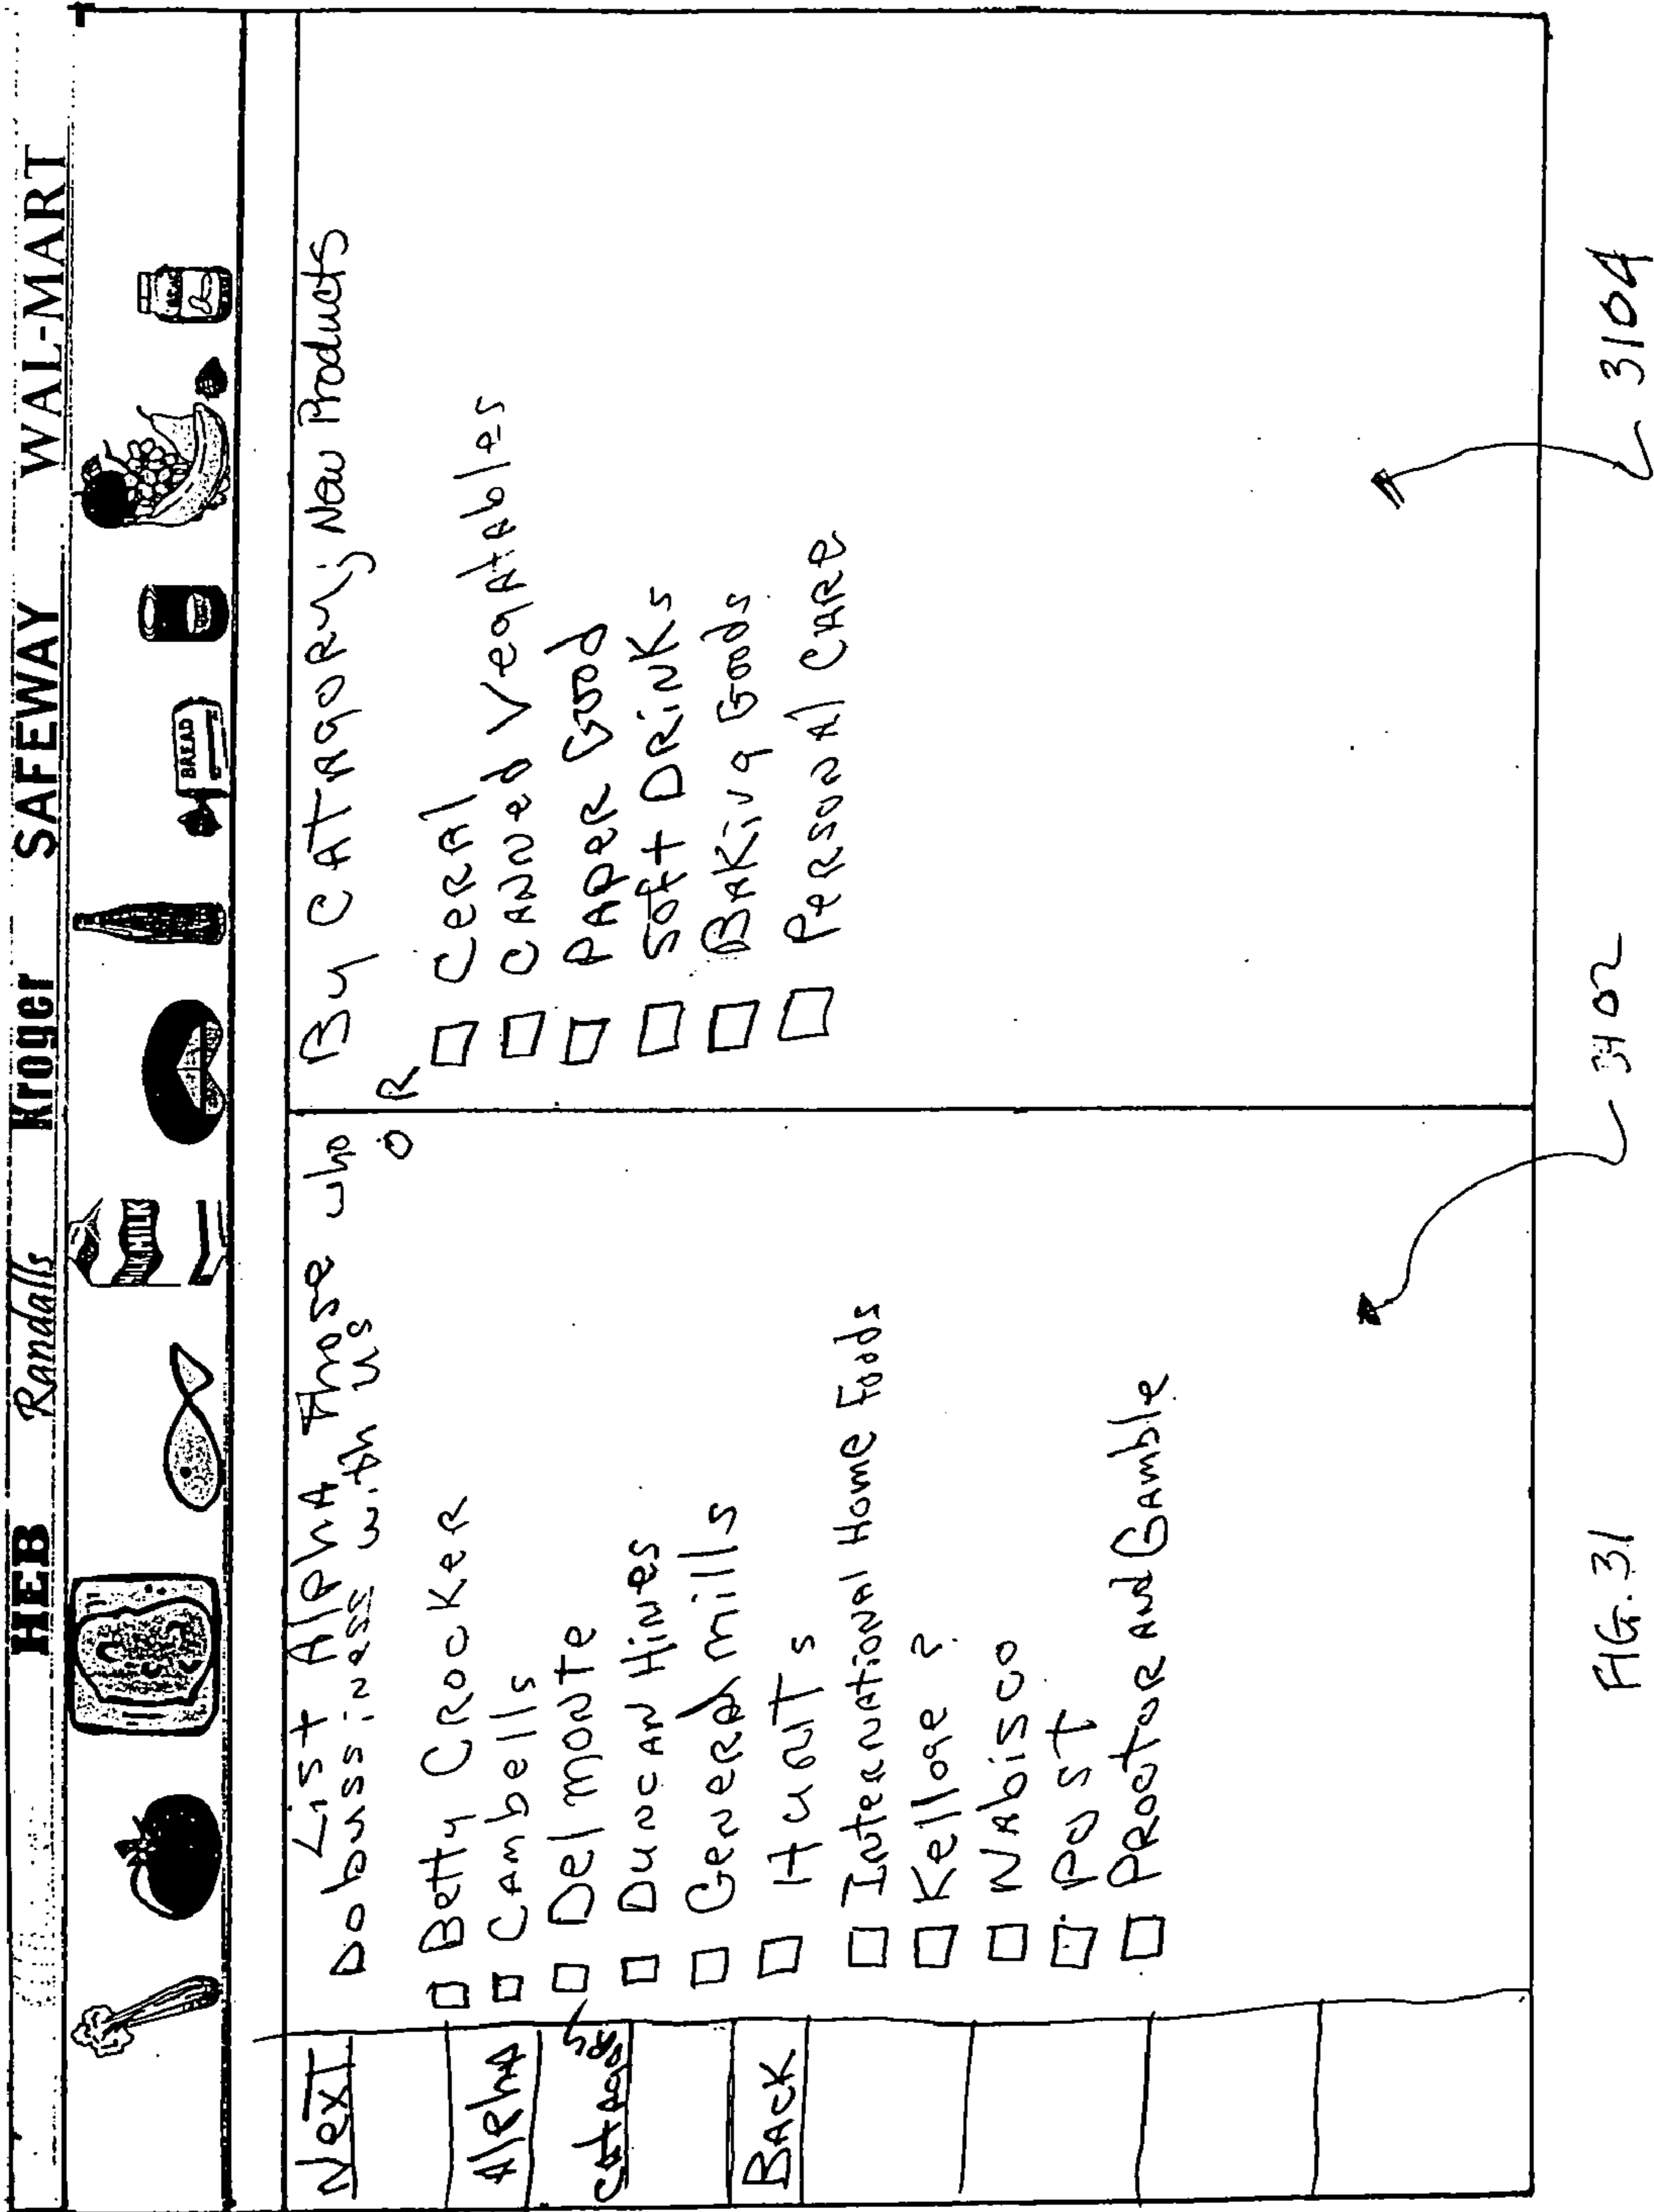 HEB Randalls Kroger SAFEWAY WAL-MART
MILK
BREAD
Next
Alpha
CATAgORy
BACK
List AlphA those who
Do bussiness with us
OR
Betty CROCKER
CAmbells
Del monte
DuncAN Hines
GenerAl mills
Hunts
InternationAl Home Foods
Kelloge ?
NAbisco
Post
PROctoR ANd GAmble
By CATAgORy; New Products
CeRAl
CANNed VegatAbles
PAPeR Good
Soft DRinks
BAKing Goods
PersonAl CARe
3102
3104
FIG. 31